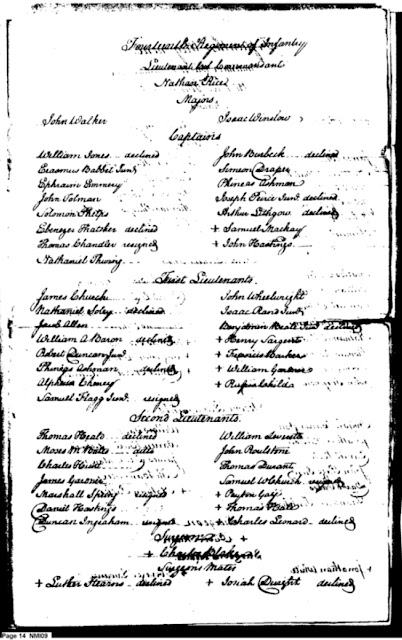 Fourteenth Regiment of Infantry
Lieutenant Col Commandant
Nathan Rice
Majors
John Walker Isaac Winslow
Captains
William Jones declined John Burbeck declined
Erasmus Babbet Junr Simeon Draper
Ephraim Emmery Phineas Ashman
John Tolman Joseph Peirce Junr declined
Solomon Phelps Arthur Lithgow declined
Ebenezer Thatcher declined + Samuel Mackay
Thomas Chandler resigned + John Hastings
Nathaniel Thwing
First Lieutenants
James Church John Wheelwright
Nathaniel Soley declined Isaac Rand Junr
Jacob Allen Benjamin Junr declined
William A Baron declined + Henry Sargent
Robert Duncan Junr + Barker
Phineas Ashman declined + William Gardner
Alpheus Cheney + Rufus Childs
Samuel Flagg Junr resigned
Second Lieutenants
Thomas Heald declined William Leverett
Moses M ditto John Roulstone
Charles Thomas Durant
James Gardner Samuel W Church
Marshall Spring + Payton Gay
Daniel Hastings + Thomas Hale
Duncan Ingraham + Charles Leonard declined
Surgeon
+
Surgeons Mates + Jonathan
+ Luther Stearns declined + Josiah Dwight declined
Page 14 NMI09